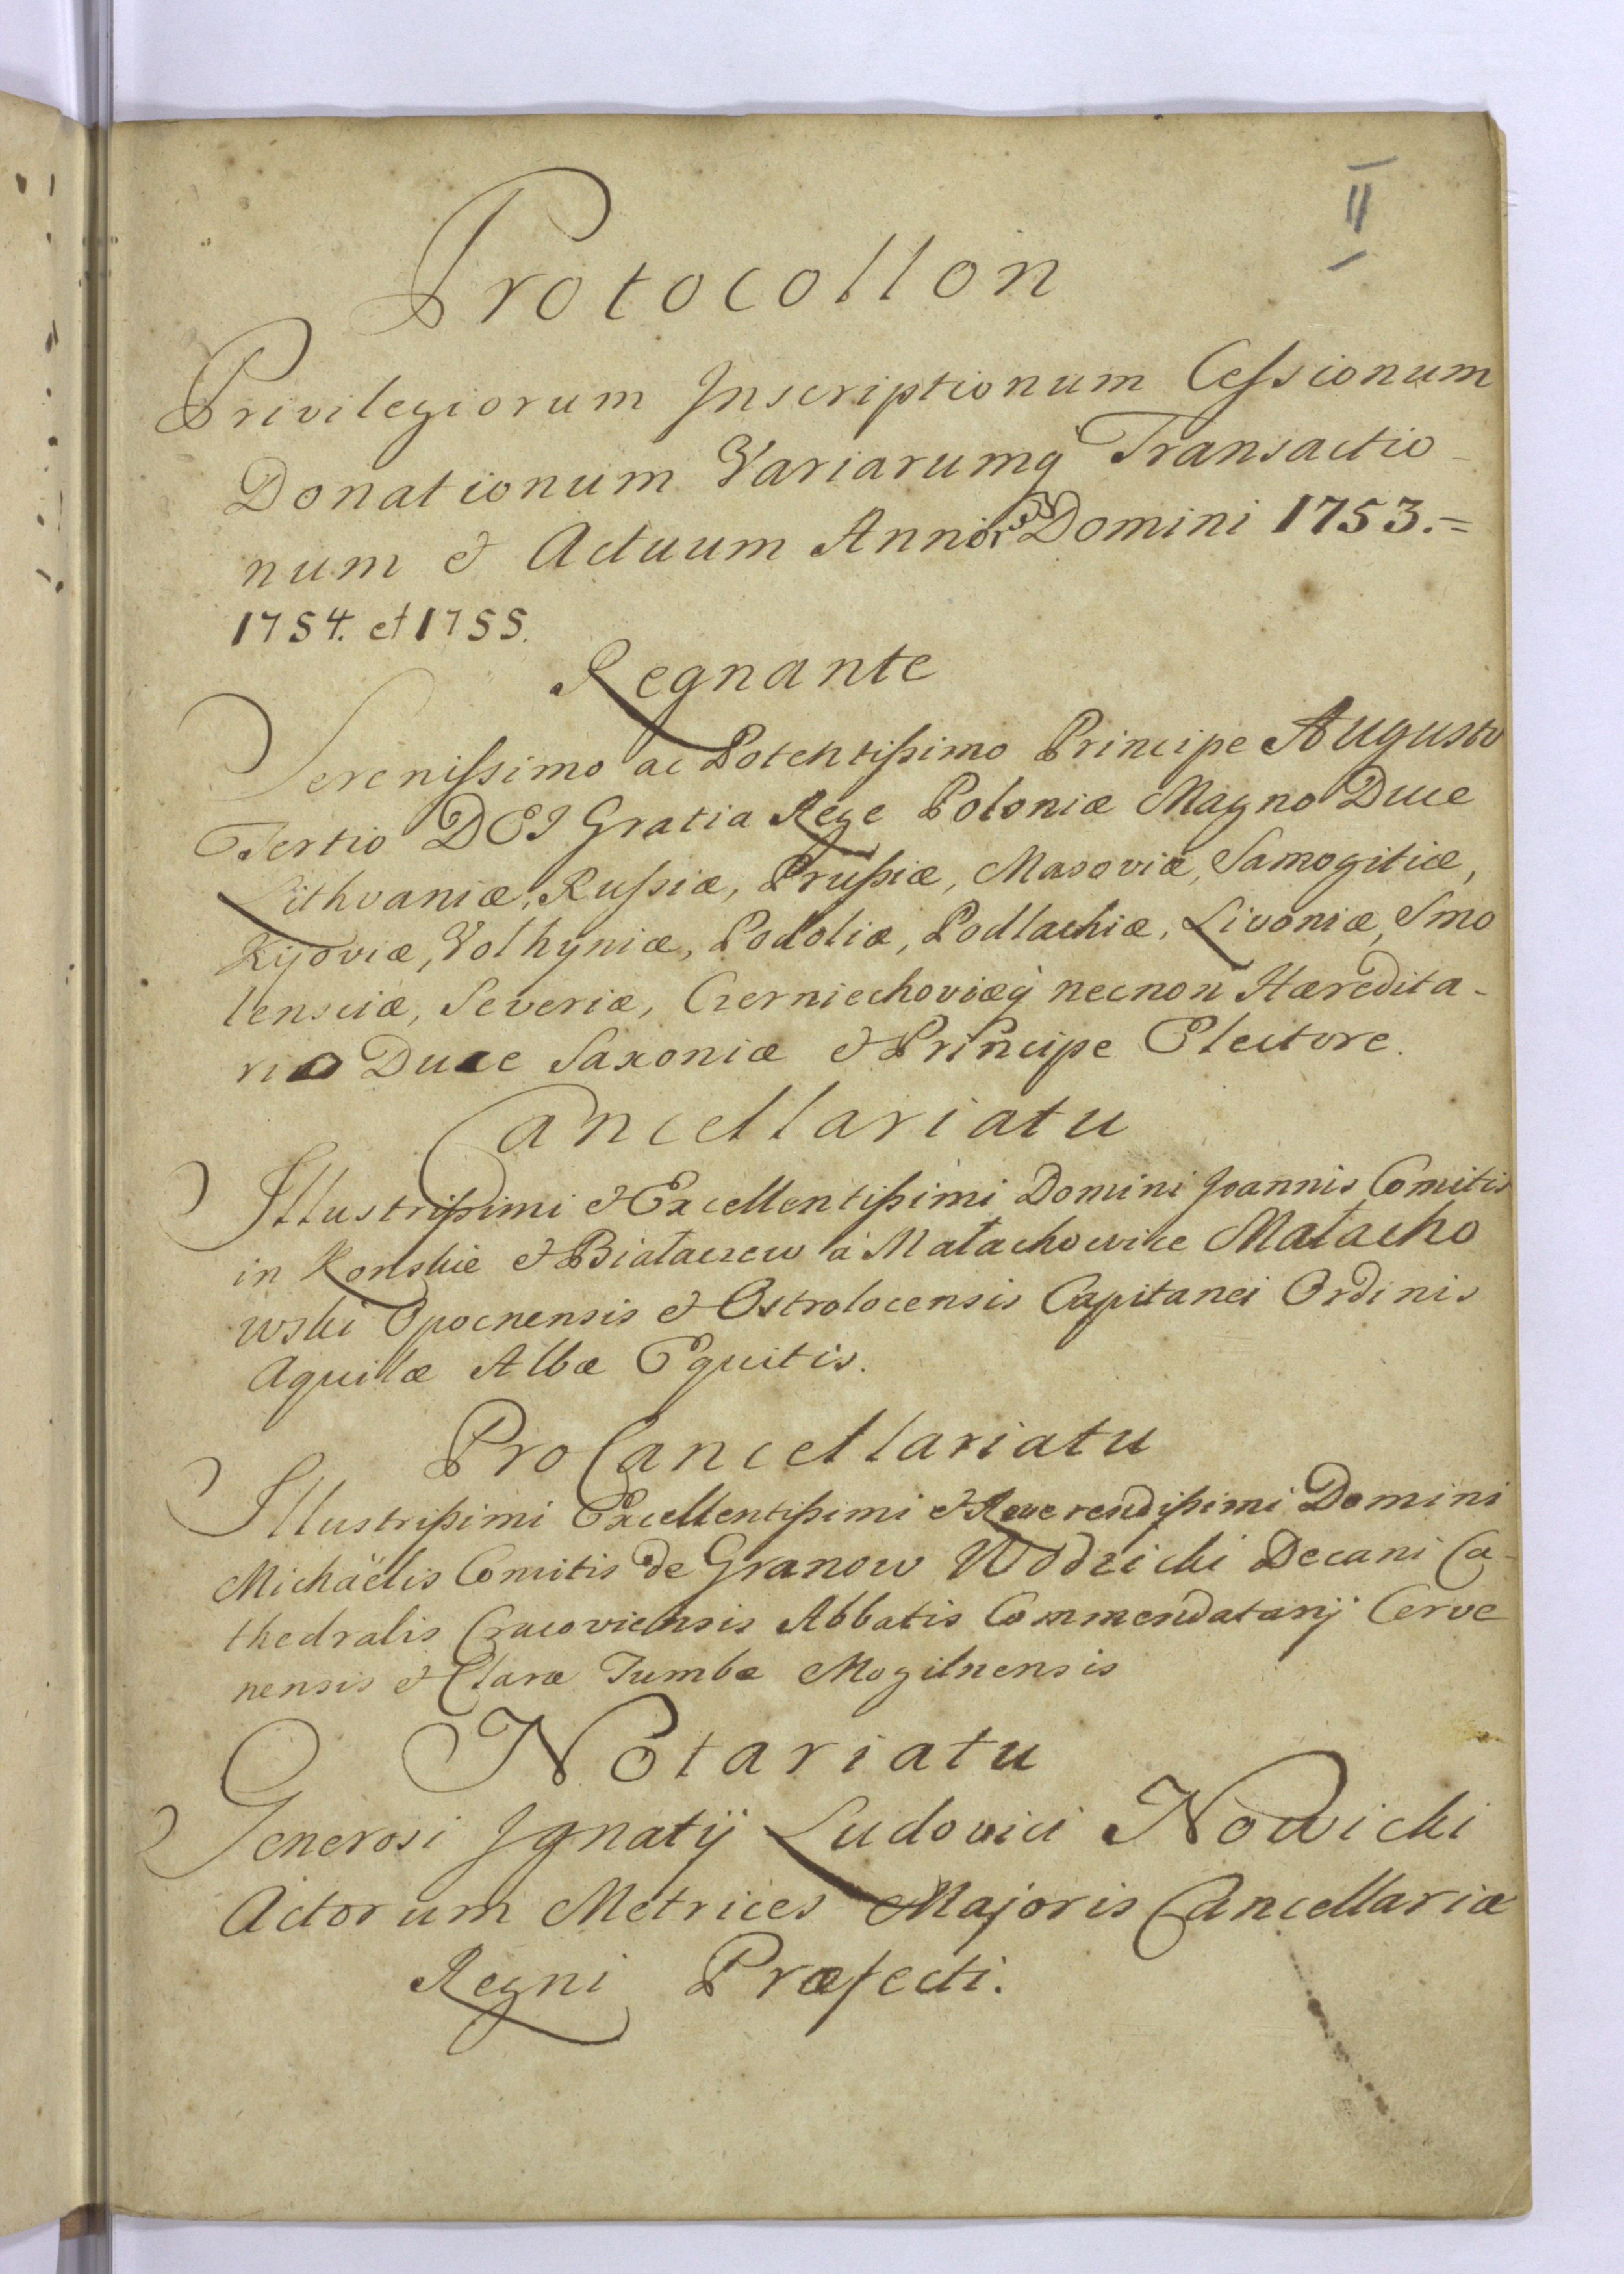 II
Protocollon
Privilegiorum Inscriptionum Cessionum
Donationum Variarumq Transactio
num & Actuum Annor Domini 1753.=
1754. et 1755.
Regnante
Serenissimo ac Potentissimo Principe Augusto
Tertio DEI Gratia Rege Poloniæ Magno Duce
Lithvaniæ, Russiæ, Prussiæ, Masoviæ, Samogitiæ,
Kijoviæ, Volhyniæ, Podoliæ, Podlachiæ, Livoniæ, Smo
lensciæ, Severiæ, Czerniechoviæq necnon Hæredita-
rio Duce Saxoniæ & Principe Electore.
Cancellariatu
Illustrissimi & Excellentissimi Domini Joannis Comitis
in Konskie & Białaczew à Małachowice Małacho
wski Opocnensis & Ostrolocensis Capitanei Ordinis
Aquilæ Albæ Equitis.
ProCancellariatu
Illustrissimi Excellentissimi & Reverendissimi Domini
Michaëlis Comitis de Granow Wodzicki Decani Ca-
thedralis Cracoviensis Abbatis Commendatarij Cerve
nensis & Claræ Tumbæ Mogilnensis
Notariatu
Generosi Ignatij Ludovici Nowicki
Actorum Metrices Majoris Cancellariæ
Regni Præfecti.